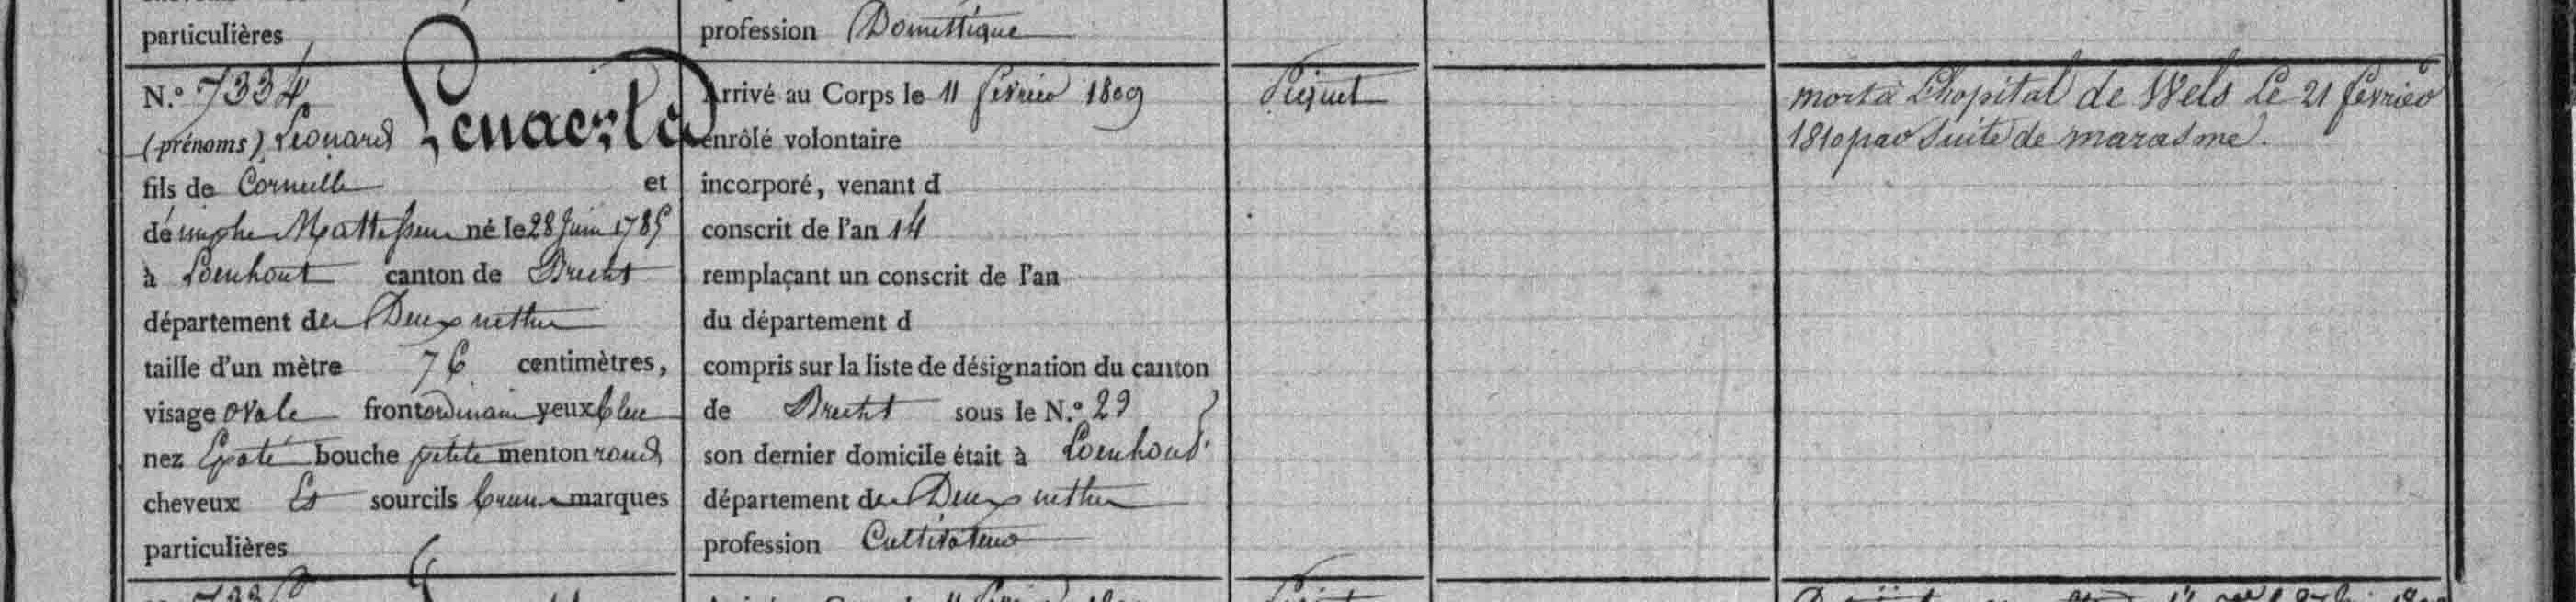 particulières
profession Domestique
N.º 7334 Lenaerts
(prénoms) Leonard
fils de Corneille et
de nimphe Matthessen né le 28 Juin 1785
à Loenhout canton de Brecht
département des Deux nethes
taille d'un mètre 76 centimètres,
visage ovale front ordinaire yeux bleu
nez Epaté bouche petite menton rond
cheveux Et sourcils brun marques
particulières
Arrivé au Corps le 11 février 1809
enrôlé volontaire
incorporé, venant d
conscrit de l'an 14
remplaçant un conscrit de l'an
du département d
compris sur la liste de désignation du canton
de Brecht sous le N.º 29
son dernier domicile était à Loenhout
département des Deux nethes
profession Cultivateur
Piquet
mort à Lhopital de Wels Le 21 février
1810 par suite de marasme.